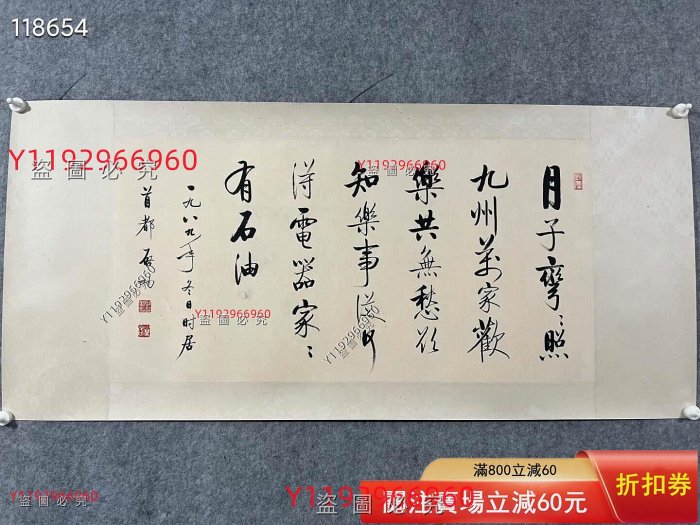 118654
月子彎〻照
九州萬家歡
樂共無愁欲
知樂事從何
得電器家〻
有石油
一九八九年冬日时居
首都 啟功
Y1192966960
盜圖必究
Y1192966960
盜圖必究
Y1192966960
盜圖必究
Y1192966960
盜圖必究
Y1192966960
盜圖必究
Y1192966960
盜圖必究
滿800立減60
關注賣場立減60元
折扣券